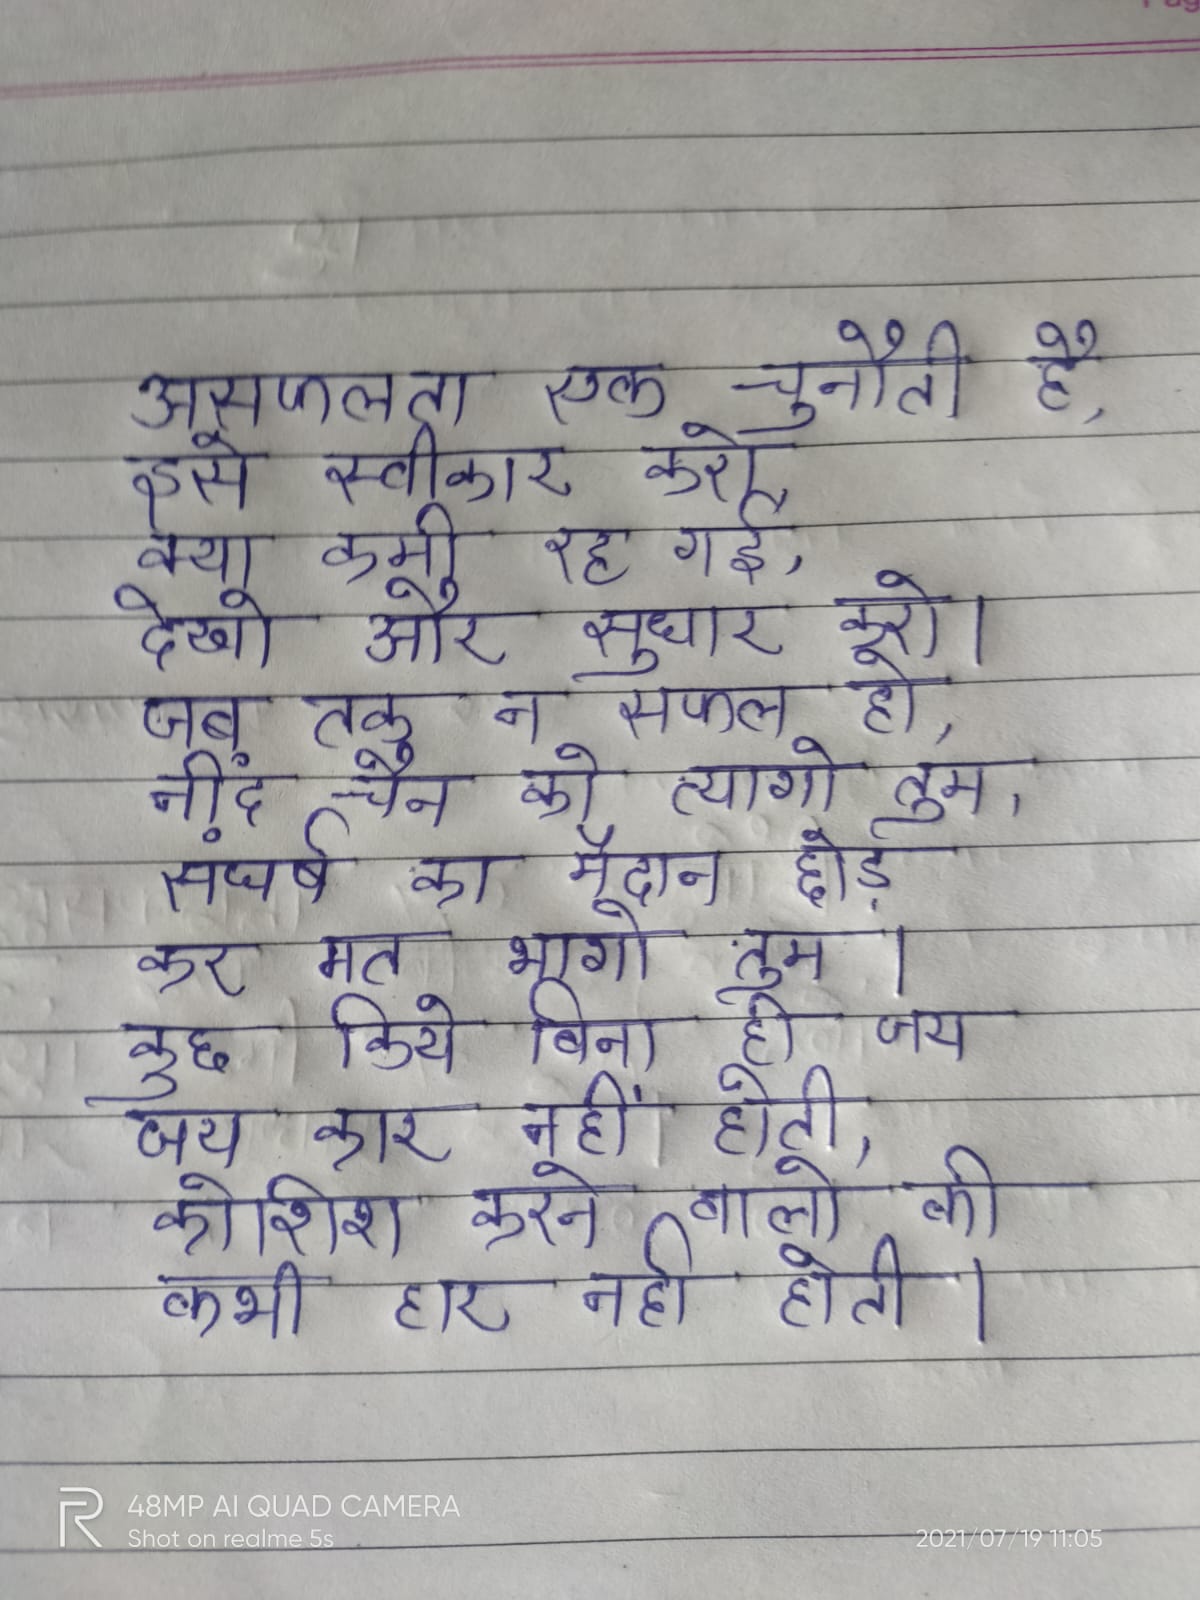 असफलता एक चुनौती है,
इसे स्वीकार करो,
क्या कमी रह गई,
देखो और सुधार करो।
जब तक न सफल हो,
नींद चैन को त्यागो तुम,
संघर्ष का मैदान छोड़
कर मत भागो तुम।
कुछ किये बिना ही जय
जय कार नहीं होती,
कोशिश करने वालो की
कभी हार नही होती।
48MP AI QUAD CAMERA
Shot on realme 5s
2021/07/19 11:05